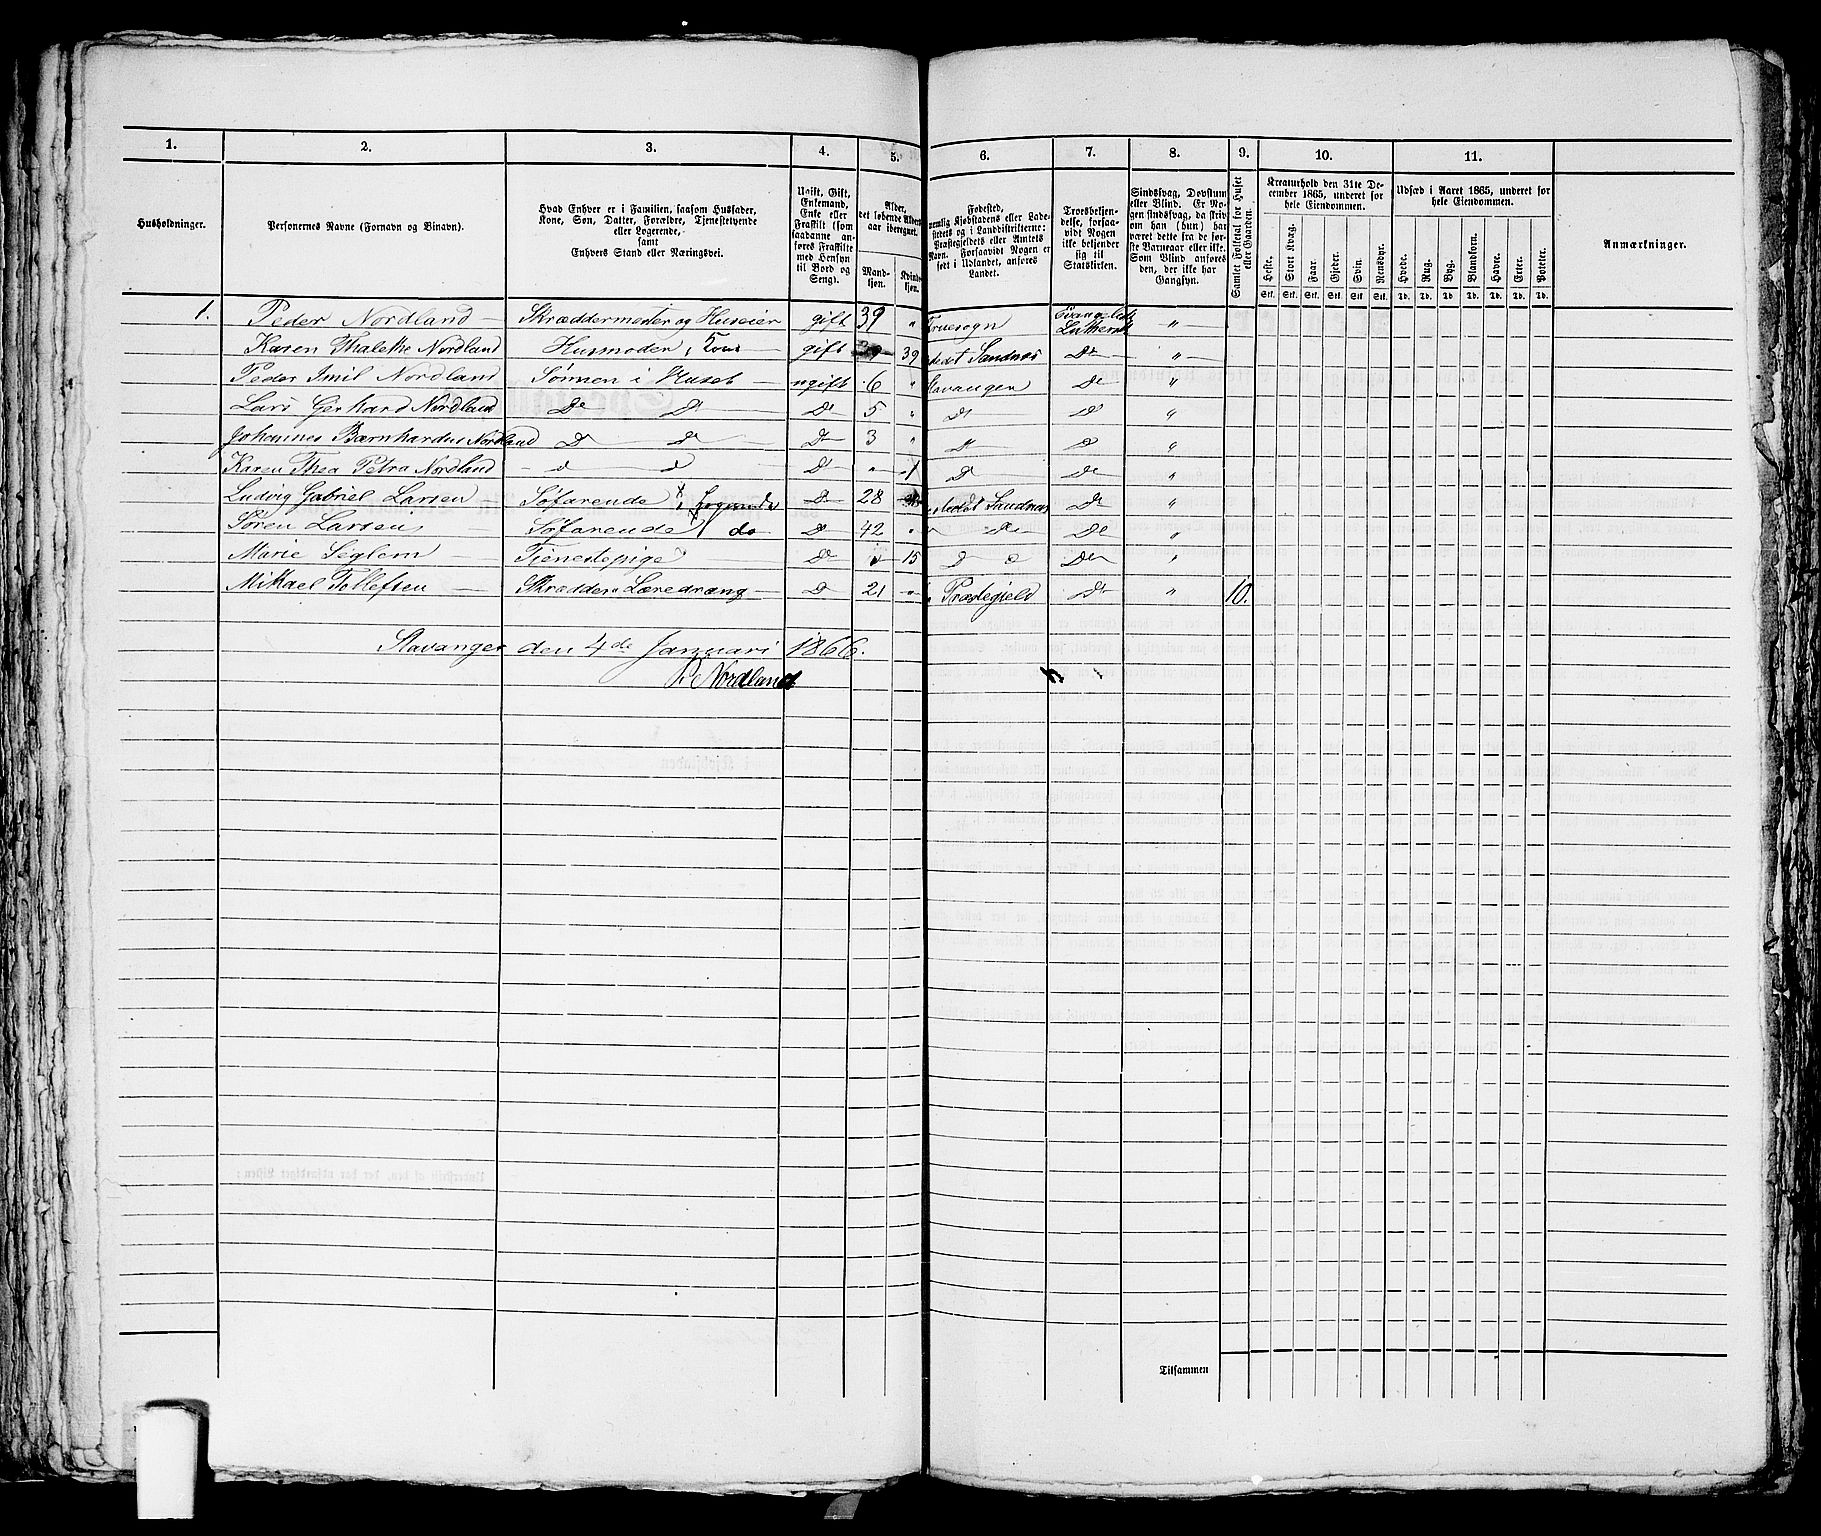 1. 2. 3. 4. 5. 6. 7. 8. 9. 10. 11.
Husholdninger.
Personernes Navne (Fornavn og Binavn).
Hvad Enhver er i Familien, saasom Husfader,
Kone, Søn, Datter, Forældre, Tjenestetyende
eller Logerende,
samt
Enhvers Stand eller Næringsvei.
Ugift, Gift,
Enkemand,
Enke eller
Fraskilt (som
saadanne an-
føres Fraskilte
med Hensyn
til Bord og
Seng).
Alder,
det løbende Alders-
aar iberegnet.
Mand-
kjøn.
Kvinde-
kjøn.
Fødested,
nemlig Kjøbstadens eller Lade-
stedets og i Landdistrikterne:
Præstegjeldets eller Amtets
Navn. Forsaavidt Nogen er
født i Udlandet, anføres
Landet.
Troesbekjen-
delse, forsaa-
vidt Nogen
ikke bekjender
sig til
Statskirken.
Sindssvag, Døvstum
eller Blind. Er No-
gen sindssvag, da skriv
om han (hun) har
været dette fra de før-
ste Barneaar eller ikke.
Som Blind anføres
den, der ikke har
Gangsyn.
Samlet Folketal for Huset
eller Gaarden.
Kreaturhold den 31te De-
cember 1865, underet for
hele Eiendommen.
Heste. Stort Kvæg. Faar. Gjeder. Svin. Rensdyr.
Stk. Stk. Stk. Stk. Stk. Stk.
Udsæd i Aaret 1865, underet for
hele Eiendommen.
Hvede. Rug. Byg. Blandkorn. Havre. Erter. Poteter.
Td. Td. Td. Td. Td. Td. Td.
Anmærkninger.
1. Peder Nordland Skræddermester og Huseier gift 39 " Fruesogn Evangelisk Luthersk "
Karen Thalethe Nordland Husmoder, Kone gift 39 Sandnæs Do "
Peder Imil Nordland Sønnen i Huset ugift 6 " Stavanger Do "
Lars Gerhard Nordland Do Do Do 5 " Do Do "
Johannes Bærnhardus Nordland Do Do Do 3 " Do Do "
Karen Thea Petra Nordland Do Do Do " 1 Do Do "
Ludvig Gabriel Larsen Søfarende x Logerende Do 28 Sandnæs Do "
Søren Larsen Søfarende x do Do 42 " Do Do "
Marie Seglem Tjenestepige Do " 15 Do Do Do "
Mikael Tollefsen Skrædder Læredræng Do 21 " Præstegjeld Do " 10.
Stavanger den 4de Januari 1866.
P. Nordland
Tilsammen